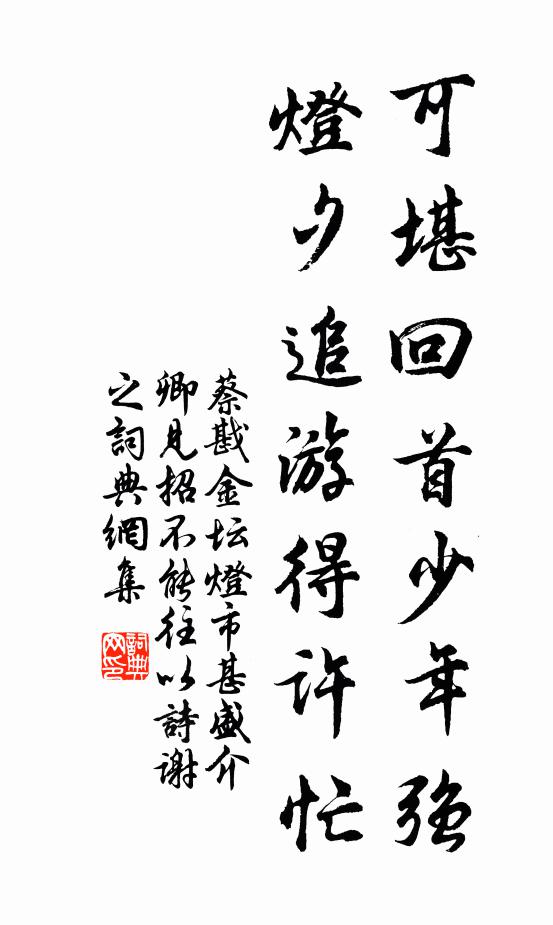 可堪回首少年强
燈夕追游得許忙
蔡戡金坛燈市甚盛介
卿見招不能往以詩謝
之詞典網集
詞典网印